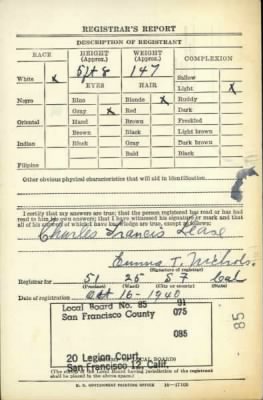 REGISTRAR'S REPORT
DESCRIPTION OF REGISTRANT
RACE HEIGHT (Approx.) WEIGHT (Approx.) COMPLEXION
5ft 8 147 Sallow
White X EYES HAIR Light X
Negro Blue Blonde X Ruddy
Gray X Red Dark
Oriental Hazel Brown Freckled
Brown Black Light brown
Indian Black Gray Dark brown
Bald Black
Filipino
Other obvious physical characteristics that will aid in identification
I certify that my answers are true; that the person registered has read or has had
read to him his own answers; that I have witnessed his signature or mark and that
all of his answers of which I have knowledge are true, except as follows:
Charles Francis
Emma T. Nichols
(Signature of registrar)
Registrar for 51 26 S F Cal
(Precinct) (Ward) (City or county) (State)
Date of registration Oct 16- 1940
Local Board No. 85 91
San Francisco County 075
085
20 Legion Court
San Francisco 12, Calif.
(The stamp of the Local Board having jurisdiction of the registrant
shall be placed in the above space.)
85
U. S. GOVERNMENT PRINTING OFFICE 16-17105